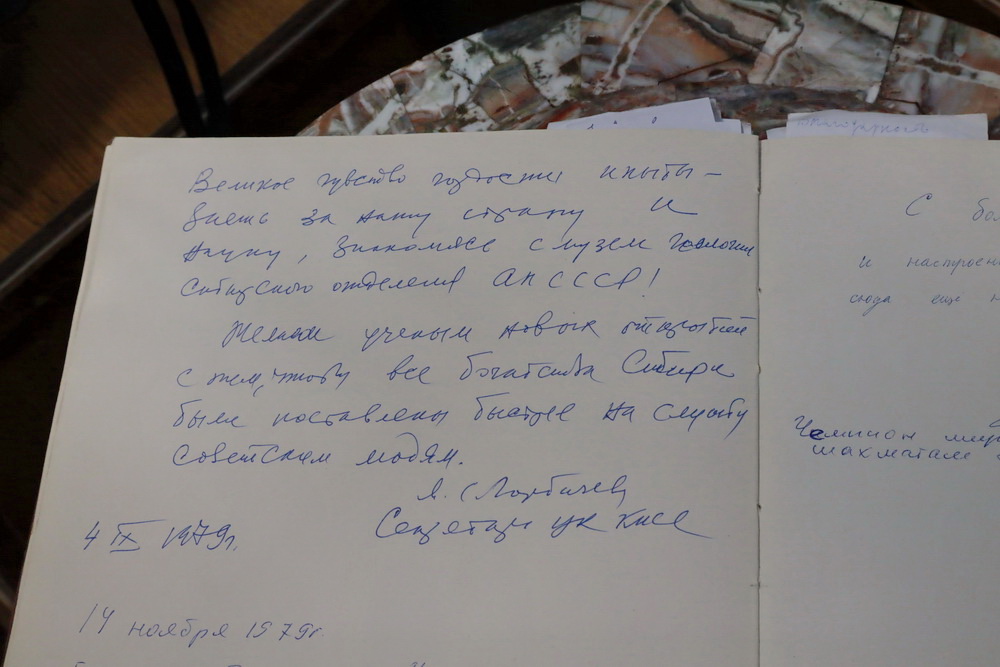 Благодарность
Великое чувство гордости испыты-
ваешь за нашу страну и
науку, знакомясь с музеем геологии
Сибирского отделения АН СССР!
Желаем ученым новых открытий
с тем, чтобы все богатства Сибири
были поставлены быстрее на службу
советским людям.
М. Горбачев
Секретарь ЦК КПСС
4 IX 1979г.
14 ноября 1979г.
С
и
сюда еще
Чемпион
шахматам